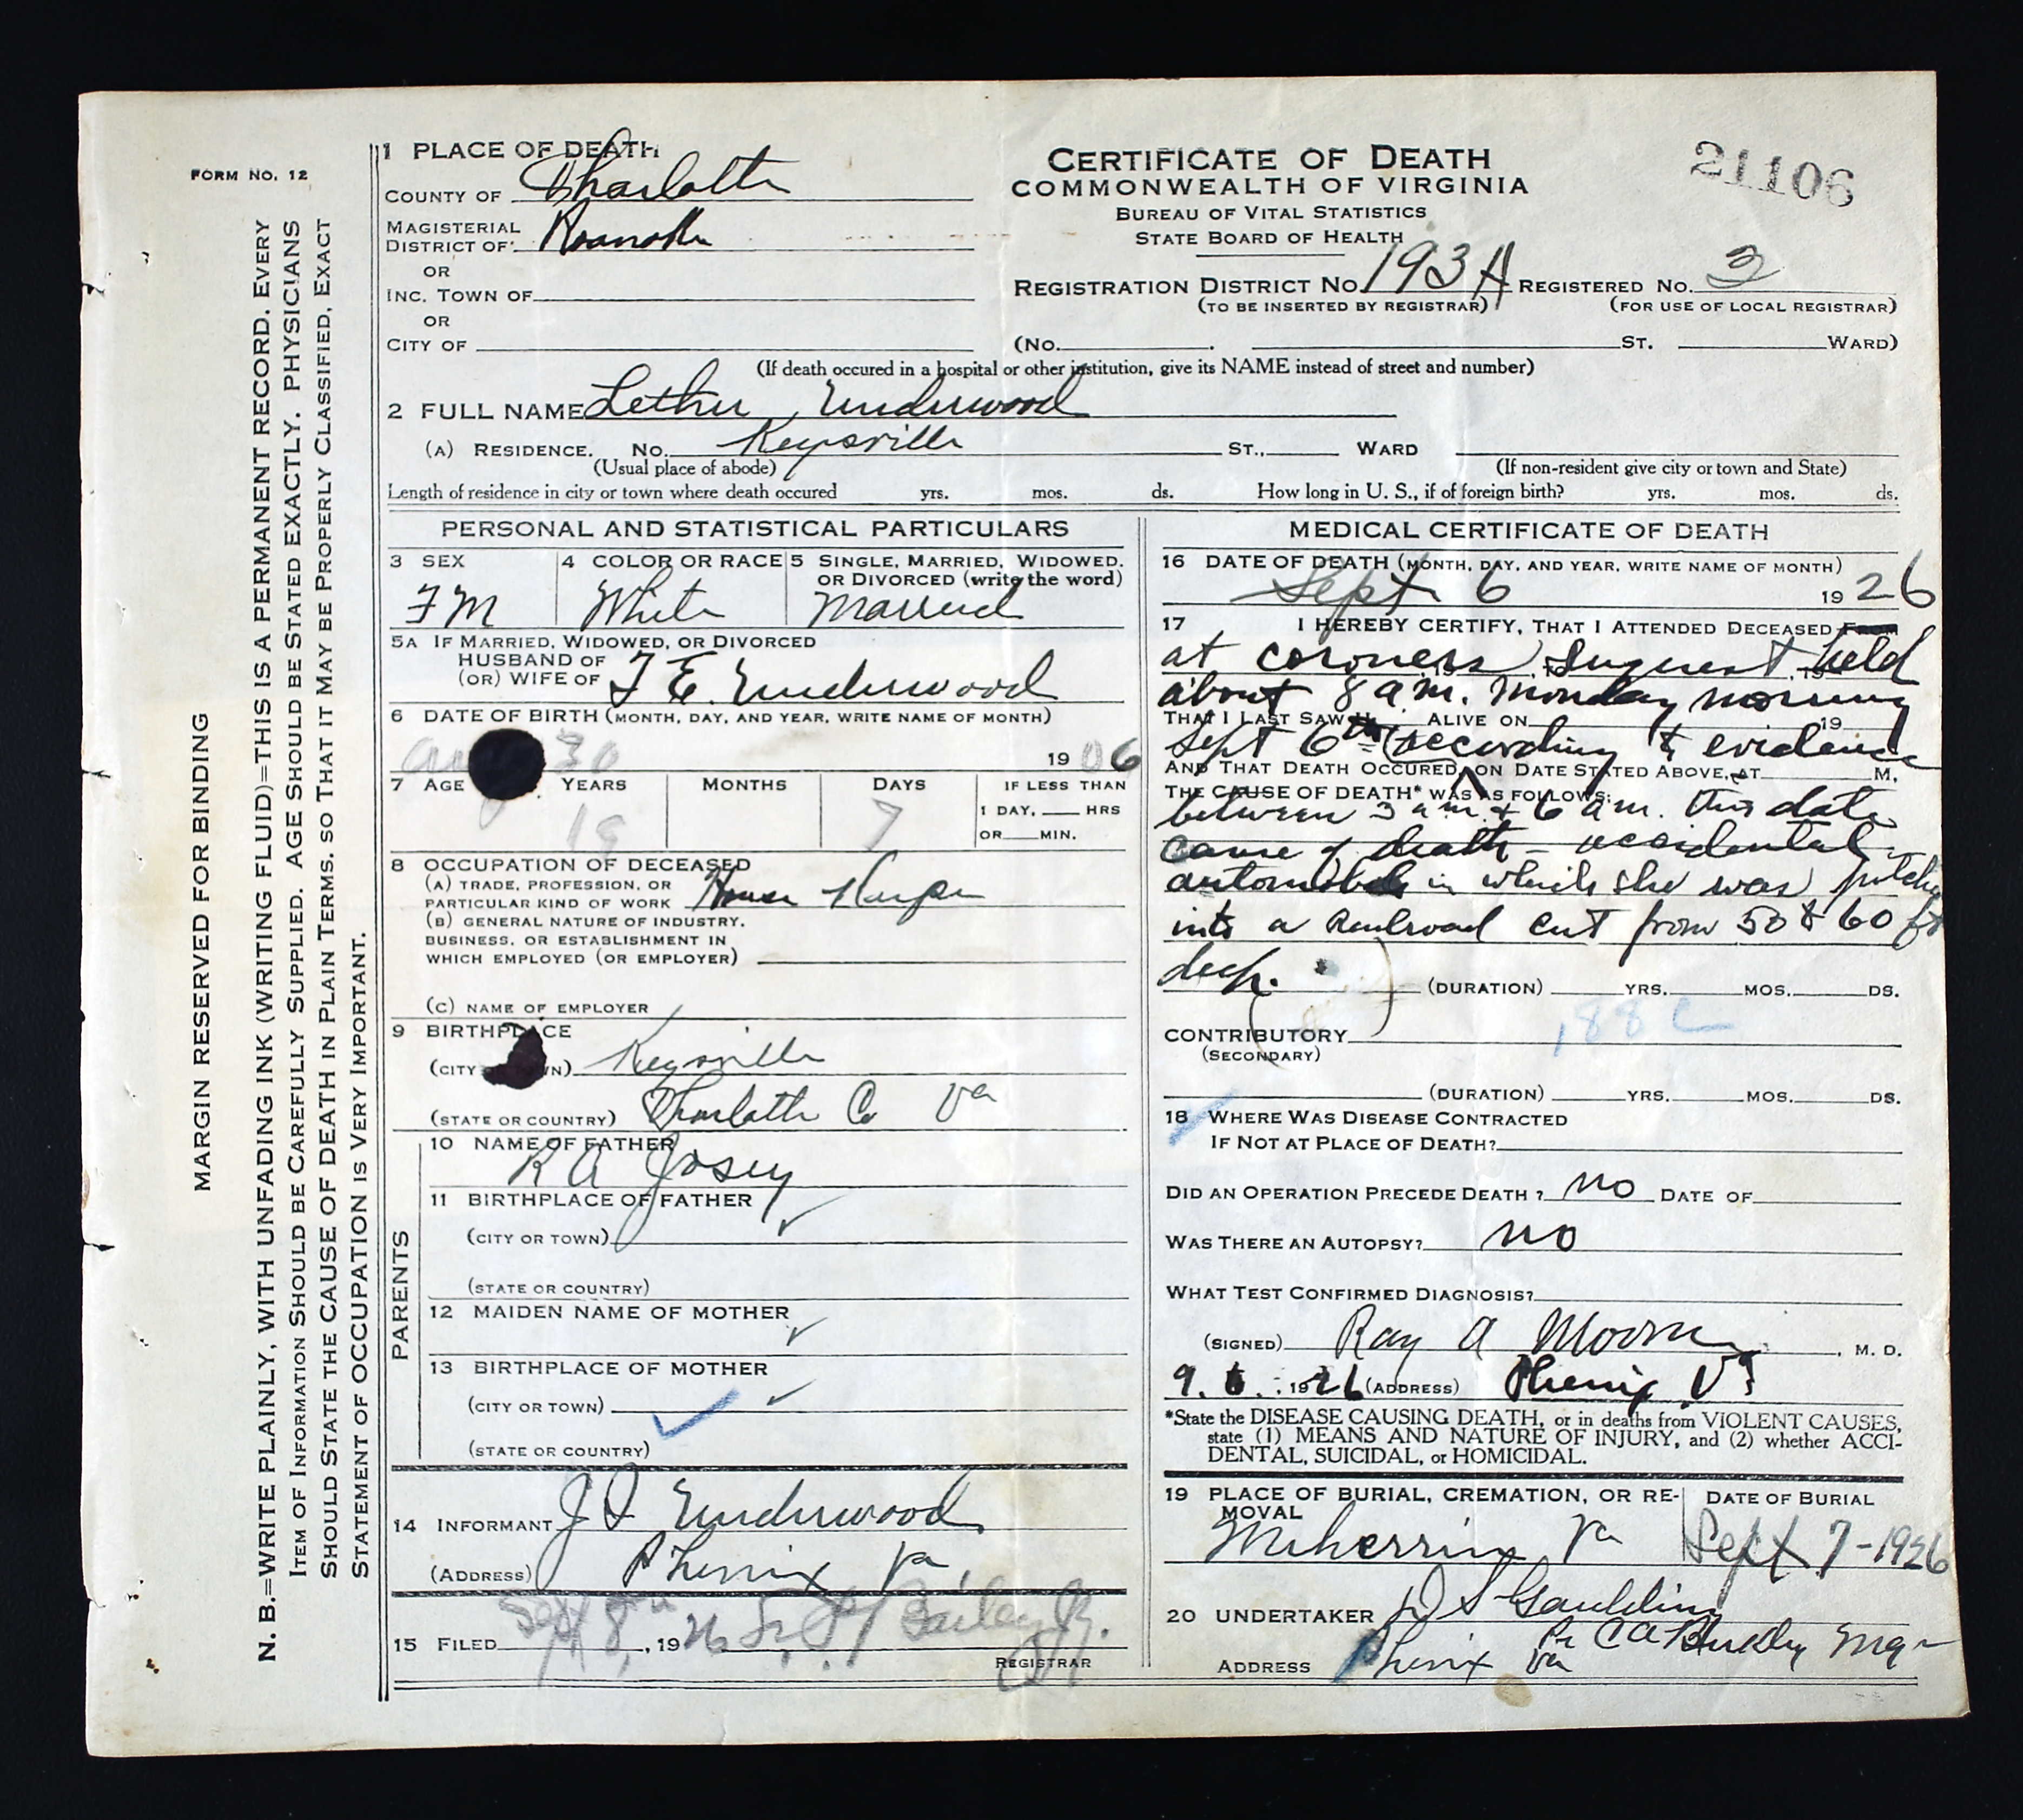 FORM NO. 12
MARGIN RESERVED FOR BINDING
N. B.=WRITE PLAINLY, WITH UNFADING INK (WRITING FLUID)=THIS IS A PERMANENT RECORD. EVERY
ITEM OF INFORMATION SHOULD BE CAREFULLY SUPPLIED. AGE SHOULD BE STATED EXACTLY. PHYSICIANS
SHOULD STATE THE CAUSE OF DEATH IN PLAIN TERMS, SO THAT IT MAY BE PROPERLY CLASSIFIED. EXACT
STATEMENT OF OCCUPATION IS VERY IMPORTANT.
1 PLACE OF DEATH
COUNTY OF Charlotte
MAGISTERIAL
DISTRICT OF Roanoke
OR
INC. TOWN OF
OR
CITY OF
CERTIFICATE OF DEATH
COMMONWEALTH OF VIRGINIA
BUREAU OF VITAL STATISTICS
STATE BOARD OF HEALTH
21106
REGISTRATION DISTRICT NO. 193A REGISTERED NO. 3
(TO BE INSERTED BY REGISTRAR) (FOR USE OF LOCAL REGISTRAR)
(NO. ST. WARD)
(If death occured in a hospital or other institution, give its NAME instead of street and number)
2 FULL NAME Lether Underwood
(A) RESIDENCE. NO. Keysville ST., WARD
(Usual place of abode) (If non-resident give city or town and State)
Length of residence in city or town where death occured yrs. mos. ds. How long in U. S., if of foreign birth? yrs. mos. ds.
PERSONAL AND STATISTICAL PARTICULARS
3 SEX 4 COLOR OR RACE 5 SINGLE, MARRIED, WIDOWED,
OR DIVORCED (write the word)
FM White Married
5A IF MARRIED, WIDOWED, OR DIVORCED
HUSBAND OF
(OR) WIFE OF T E. Underwood
6 DATE OF BIRTH (MONTH, DAY, AND YEAR, WRITE NAME OF MONTH)
30 1906
7 AGE YEARS MONTHS DAYS IF LESS THAN
1 DAY, HRS
OR MIN.
7
8 OCCUPATION OF DECEASED
(A) TRADE, PROFESSION, OR
PARTICULAR KIND OF WORK House Keeper
(B) GENERAL NATURE OF INDUSTRY,
BUSINESS, OR ESTABLISHMENT IN
WHICH EMPLOYED (OR EMPLOYER)
(C) NAME OF EMPLOYER
9 BIRTHPLACE
(CITY WN) Keysville
(STATE OR COUNTRY) Charlotte Co Va
PARENTS
10 NAME OF FATHER
R A Josey
11 BIRTHPLACE OF FATHER
(CITY OR TOWN)
(STATE OR COUNTRY)
12 MAIDEN NAME OF MOTHER
13 BIRTHPLACE OF MOTHER
(CITY OR TOWN)
(STATE OR COUNTRY)
14 INFORMANT J I Underwood
(ADDRESS) Phenix Va
15 FILED Sept 8th, 1926 Bailey Jr.
REGISTRAR
MEDICAL CERTIFICATE OF DEATH
16 DATE OF DEATH (MONTH, DAY, AND YEAR, WRITE NAME OF MONTH)
Sept 6 1926
17 I HEREBY CERTIFY, THAT I ATTENDED DECEASED FROM
at coroners Inquest held
about 8 a.m. Monday morning
THAT I LAST SAW H ALIVE ON 19
Sept 6th (according to evidence
AND THAT DEATH OCCURED, ON DATE STATED ABOVE, AT M.
THE CAUSE OF DEATH* WAS AS FOLLOWS:
between 3 a.m. & 6 a.m. this date
cause of death - accidental
automobile in which she was pitched
into a railroad cut from 50 to 60 ft
deep.
(DURATION) YRS. MOS. DS.
CONTRIBUTORY
(SECONDARY)
188 C
(DURATION) YRS. MOS. DS.
18 WHERE WAS DISEASE CONTRACTED
IF NOT AT PLACE OF DEATH?
DID AN OPERATION PRECEDE DEATH? no DATE OF
WAS THERE AN AUTOPSY? no
WHAT TEST CONFIRMED DIAGNOSIS?
(SIGNED) Ray A Moore, M. D.
9. 6. 1926 (ADDRESS) Phenix Va
*State the DISEASE CAUSING DEATH, or in deaths from VIOLENT CAUSES,
state (1) MEANS AND NATURE OF INJURY, and (2) whether ACCI-
DENTAL, SUICIDAL, or HOMICIDAL.
19 PLACE OF BURIAL, CREMATION, OR RE-
MOVAL
DATE OF BURIAL
Meherrin Va Sept 7-1926
20 UNDERTAKER D S Gaulding
Pr C A Mgr
ADDRESS Phenix Va